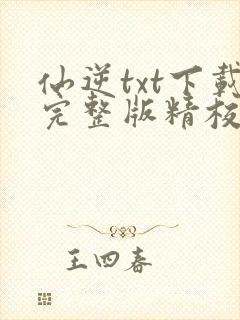 仙逆txt下载
完整版精校
王四春